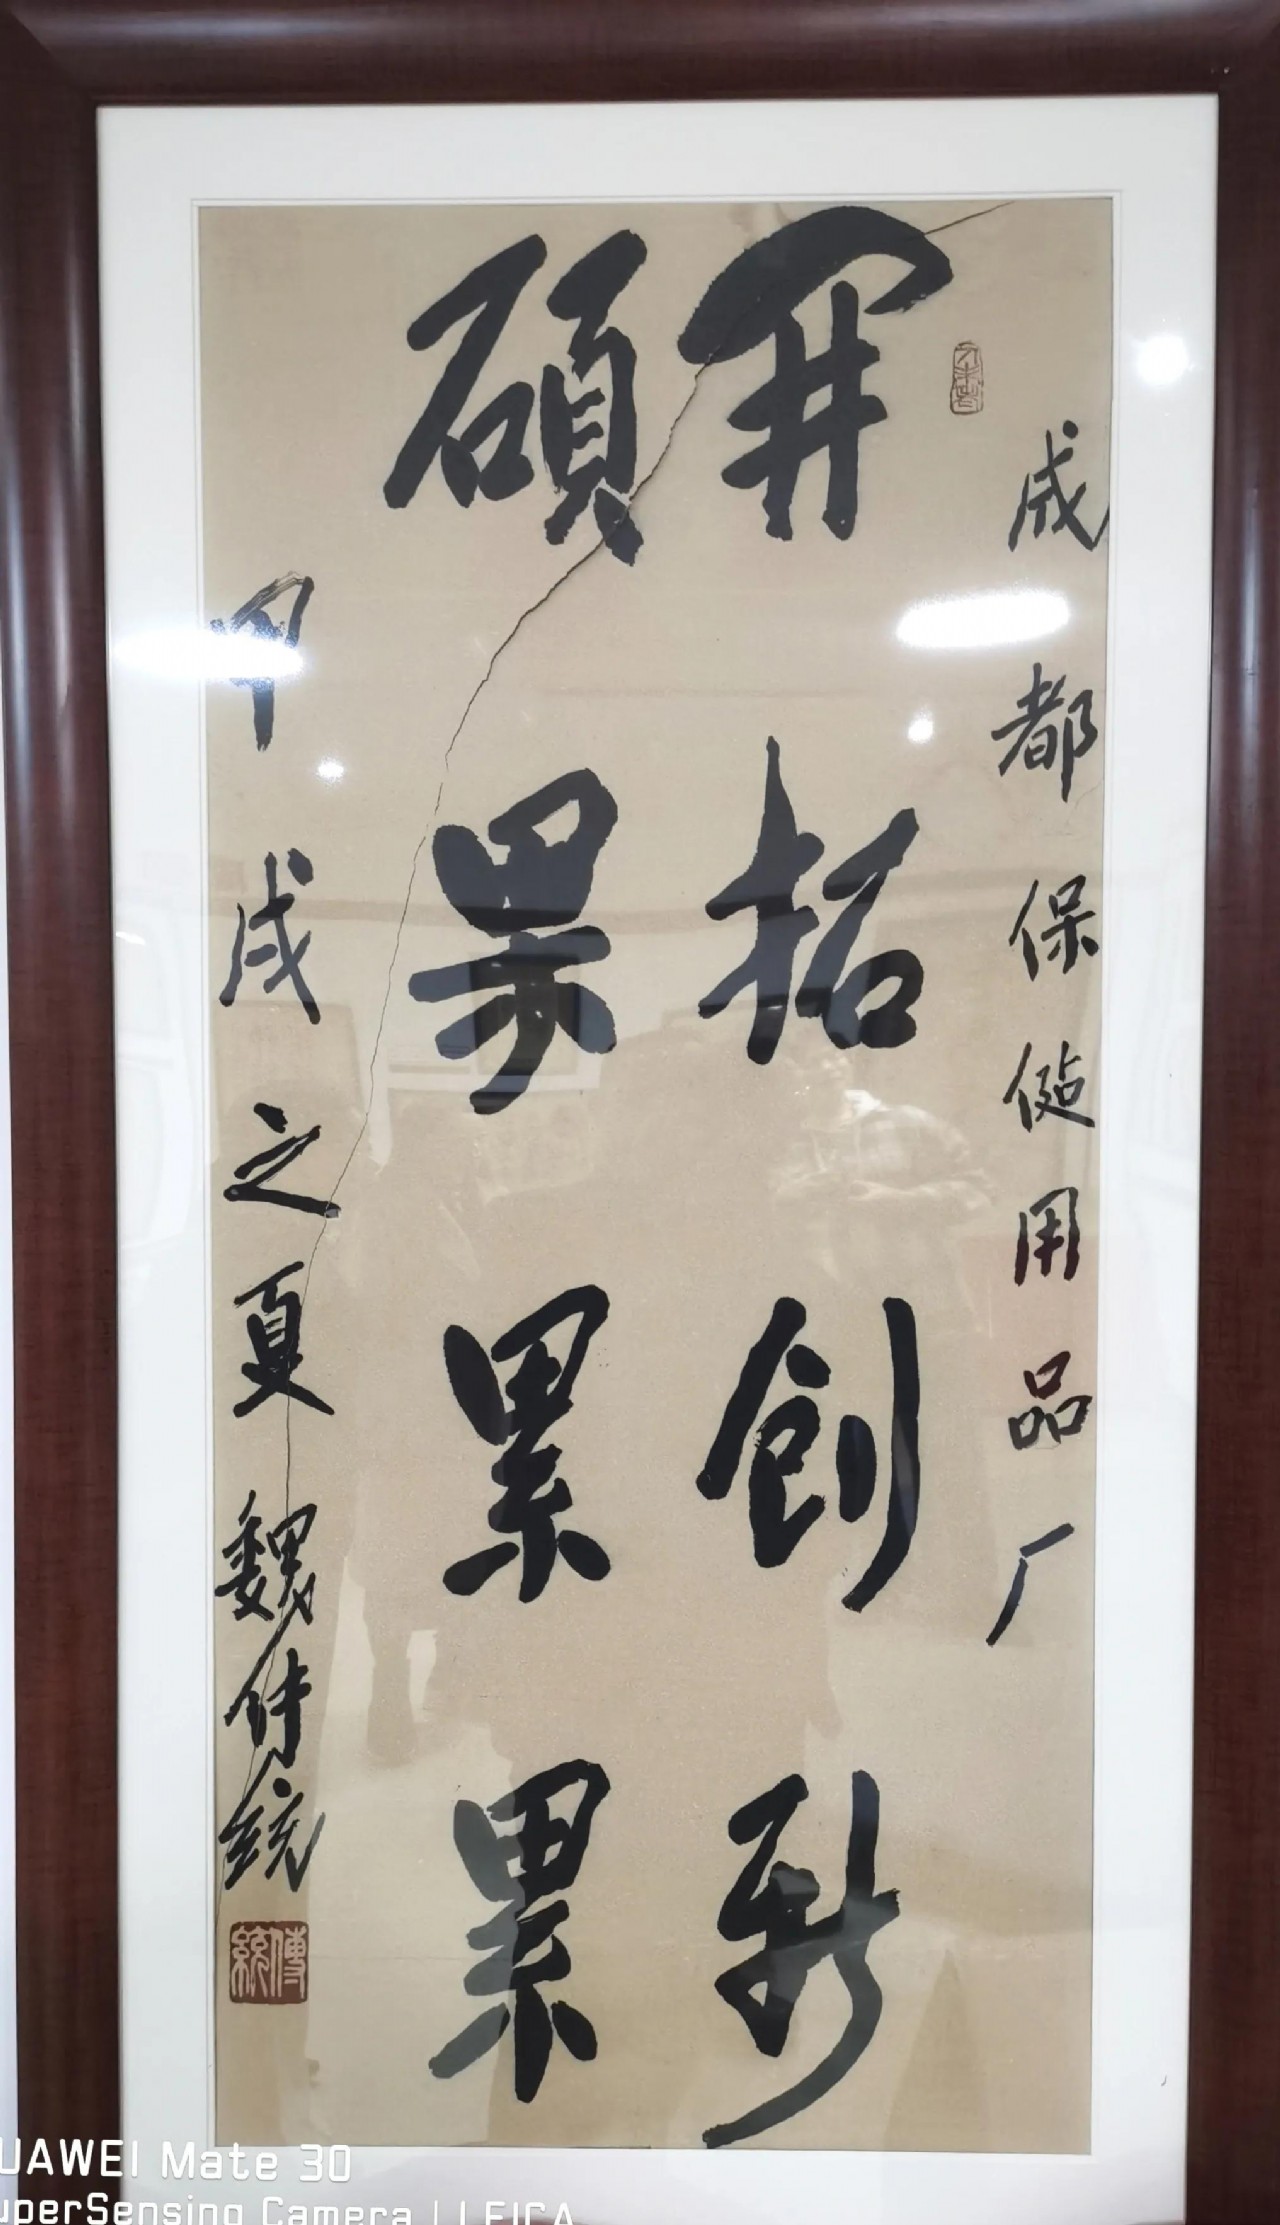 成都保健用品厂
開拓創新
碩果累累
甲戌之夏 魏传統
傳統
HUAWEI Mate 30
SuperSensing Camera | LEICA